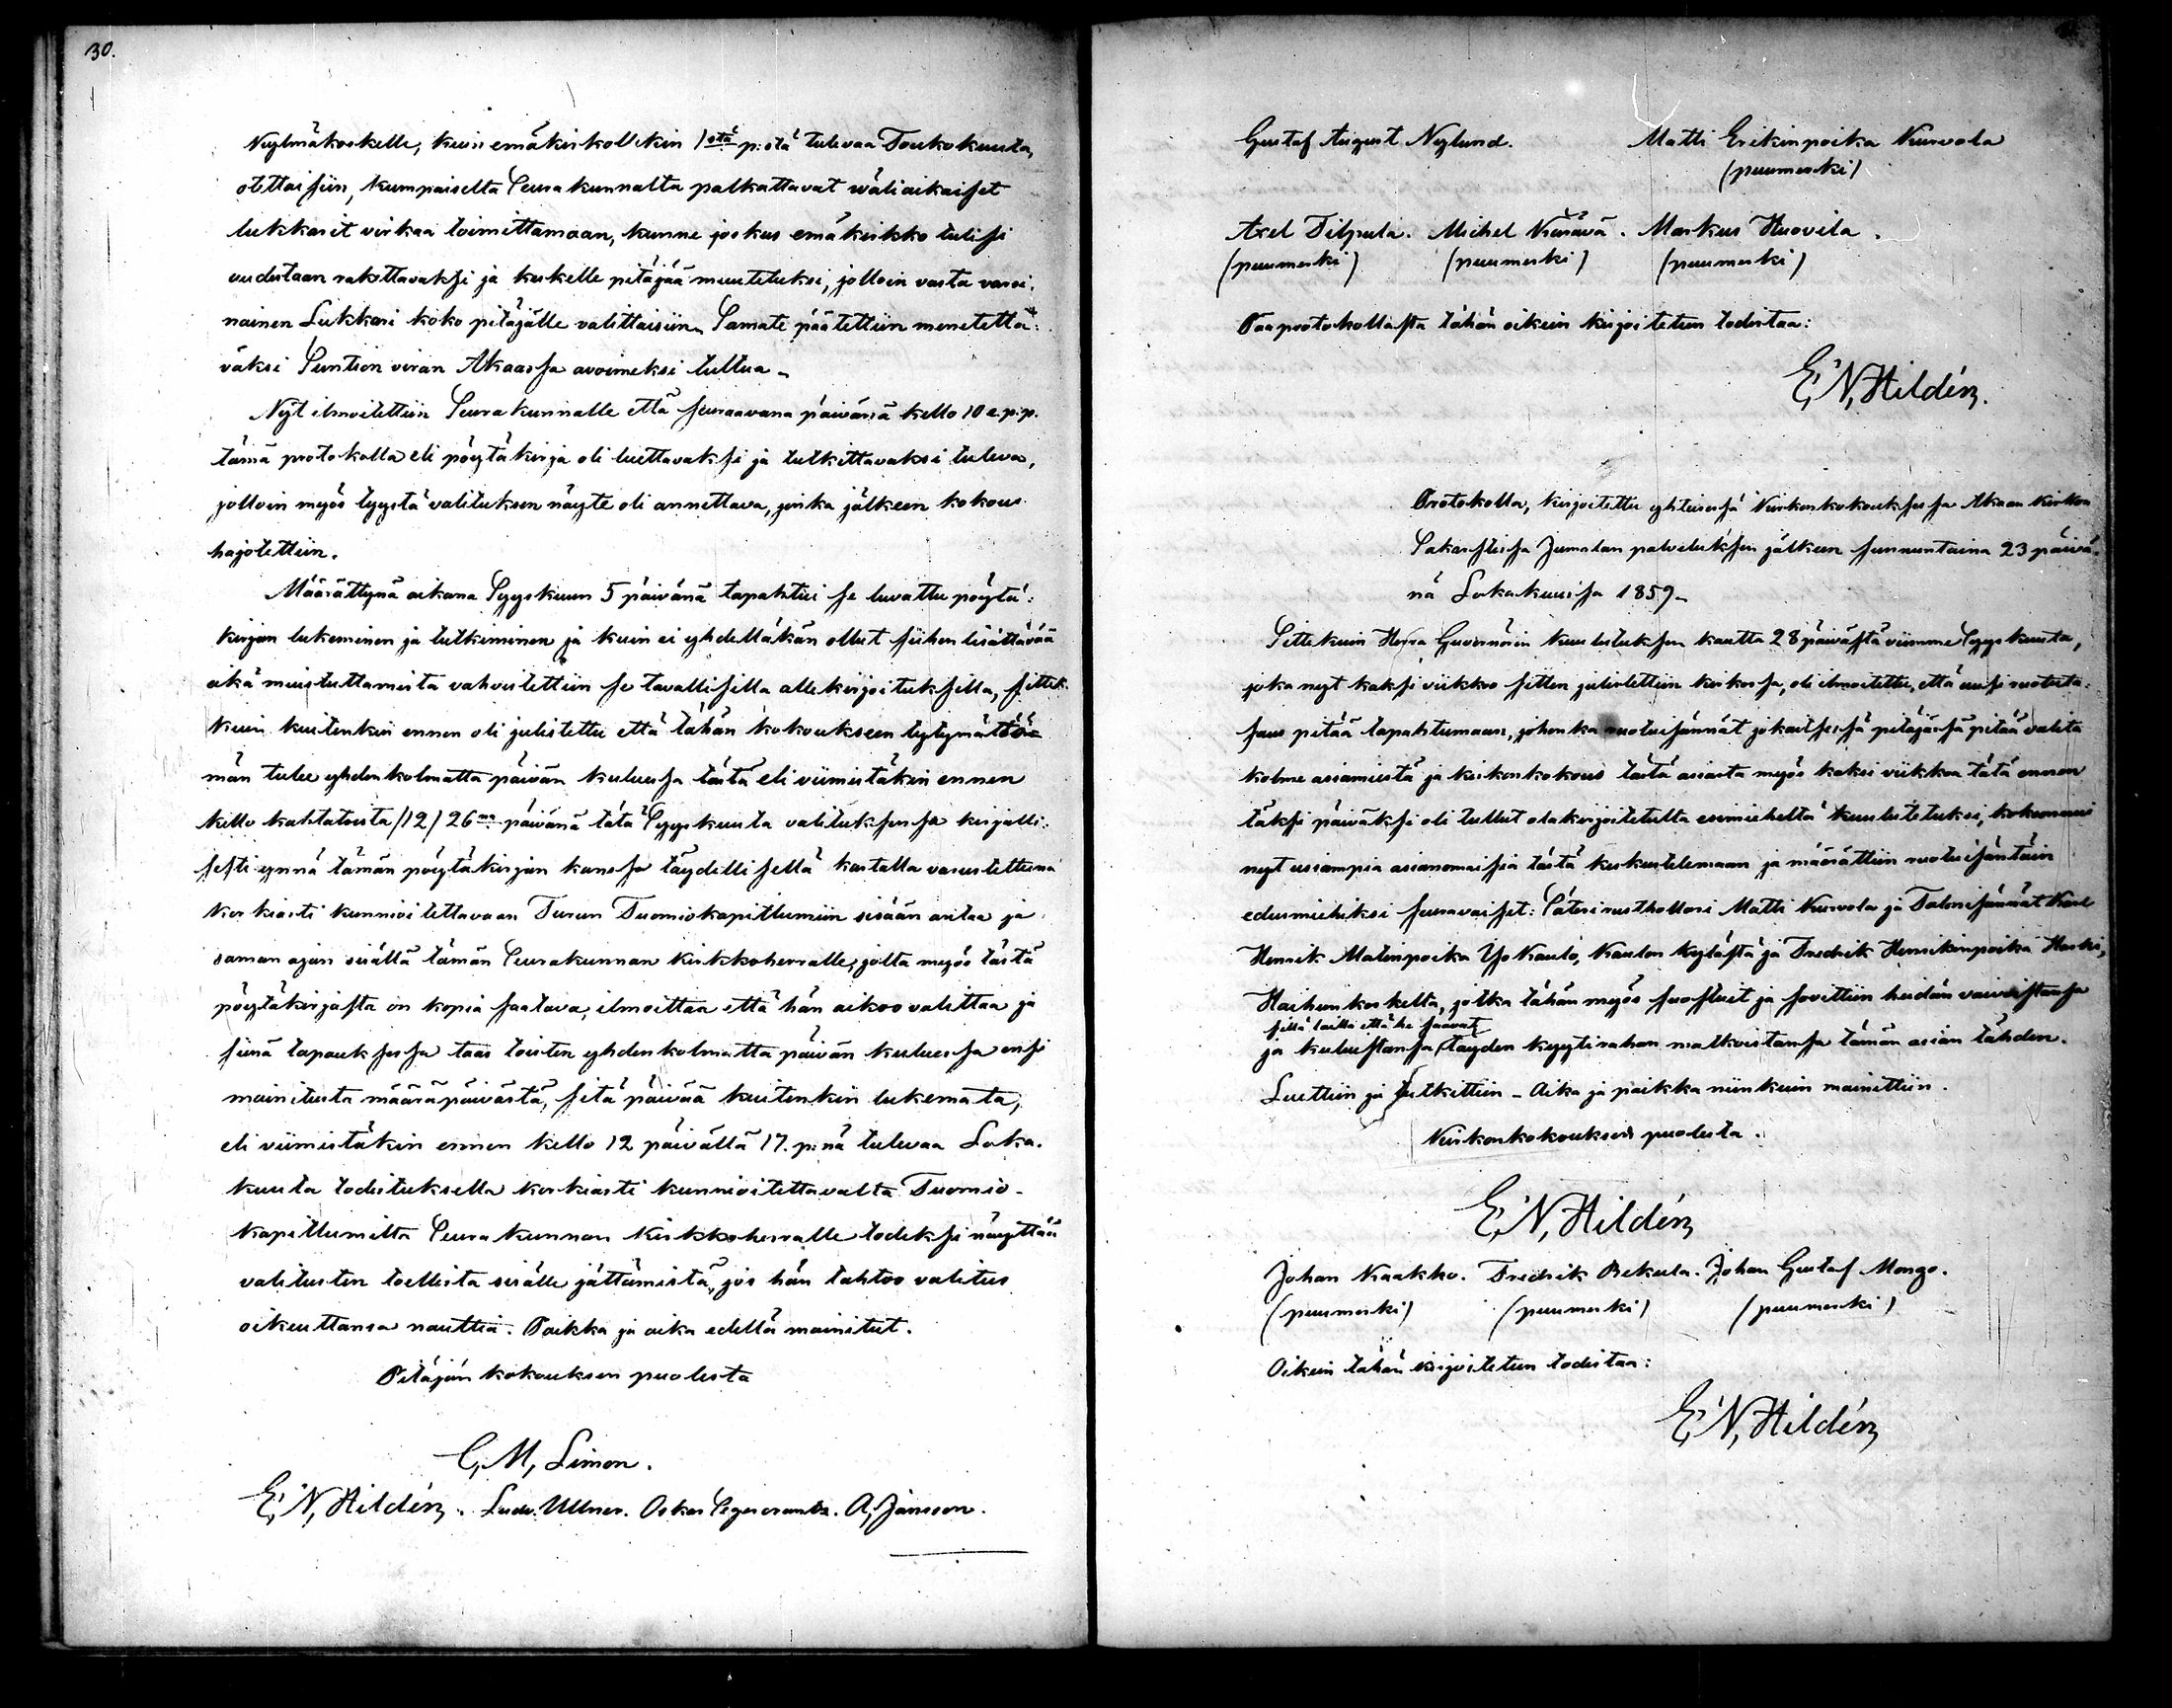 30.
Kylmäkoskelle, kuin emäkirkollekin 1stä p:stä tulevaa Toukokuuta,
otettaisiin, kumpaiselta Seurakunnalta palkattavat wäliaikaiset
lukkarit virkaa toimittamaan, kunne joskus emäkirkko tulisi
uudestaan rakettavaksi ja keskelle pitäjää muutetuksi, jolloin vasta varsi-
nainen Lukkari koko pitäjälle valittaisiin. Samate päätettiin menetettä-
väksi Suntion viran Akaassa avoimeksi tultua.
Nyt ilmoitettiin Seurakunnalle että seuraavana päivänä kello 10 e.p.p.
tämä protokolla eli pöytäkirja oli luettavaksi ja tutkittavaksi tuleva,
jolloin myös tyystä valituksen näyte oli annettava, jonka jälkeen kokous
hajotettiin.
Määrättynä aikana Syyskuun 5 päivänä tapahtui se luvattu pöytä-
kirjan lukeminen ja tutkiminen ja kuin ei yhdelläkän ollut siihen lisättävää
eikä muistuttamista vahvistettiin se tavallisella allekirjoituksella, sittek-
kuin kuitenkin ennen oli julistettu että tähän kokoukseen tytymättö-
män tulee yhdenkolmatta päivän kuluessa tästä eli viimistäkin ennen
kello kahtatoista /12/ 26na päivänä tätä Syyskuuta valituksensa kirjalli-
sesti ynnä tämän pöytäkirjan kanssa täydellisellä kartalla varustettuna
korkiasti kunnioitettavaan Turun Tuomiokapitlumiin sisään antaa ja
saman ajan sisällä tämän Seurakunnan kirkkoherralle, jolta myös tästä
pöytäkirjasta on kopia saatava, ilmoittaa että hän aikoo valittaa ja
siinä tapauksessa taas toisten yhdenkolmatta päivän kuluessa ensi
mainitusta määräpäivästä, sitä päivää kuitenkin lukemata,
eli viimistäkin ennen kello 12 päivällä 17. p:nä tulevaa Loka-
kuuta todistuksella korkiasti kunnioitettavalta Tuomio-
kapitlumilta Seurakunnan kirkkoherralle todeksi näyttää
valitusten toellista sisälle jättämistä, jos hän tahtoo valitus
oikeuttansa nauttia. Paikka ja aika edellä mainitut.
Pitäjän kokouksen puolesta
C, M, Limon.
E, N, Hildén. Ludv. Ullner. Oskar Segercrantz. A, Jansson.
Gustaf August Nylund. Matti Erikinpoika Kurvola
(puumerki)
Axel Tilpula. Michel Kärävä. Markus Huovila.
(puumerki) (puumerki) (puumerki)
Pääprotokollasta tähän oikein kirjoitetun todistaa:
E, N, Hildén.
Protokolla, kirjoitettu yhteisessä Kirkonkokouksessa Akaan kirkon
Sakastissa Jumalan palveluksen jälkeen sunnuntaina 23 päivä-
nä Lokakuussa 1859.
Sittekuin Herra Guvernörin kuulutuksen kautta 28 päivästä viimme Syyskuuta,
joka nyt kaksi viikkoo sitten julistettiin kirkossa, oli ilmoitettu, että uusi ruotuta-
saus pitää tapahtumaan, johonka ruotuisännät jokaitsessa pitäjässä pitää valita
kolme asiamiestä ja kirkonkokous tästä asiasta myös kaksi viikkoa tätä ennen
täksi päiväksi oli tullut alakirjoitetulta esimieheltä kuulutetuksi, kokoonnui
nyt usiampia asianomaisia tästä keskustelemaan ja määrättiin ruotuisäntäin
edusmiehiksi seuraavaiset: Säterirusthollari Matti Kurvola ja Talonisännät Karl
Henrik Matinpoika Yr Kaulo, Kaulon kylästä ja Fredrik Henrikinpoika Harki,
Haihunkoskelta, jotka tähän myös suostuit ja sovittiin heidän vaivastansa
sillä lailla että he saavat
ja kulustansa, täyden kyytirahan matkoistansa tämän asian tähden.
Luettiin ja tutkittiin - Aika ja paikka niinkuin mainittiin.
Kirkonkokouksen puolesta.
E, N, Hildén
Johan Kaakko. Fredrik Rekula. Johan Gustaf Mongo.
(puumerki) (puumerki) (puumerki)
Oikein tähän kirjoitetun todistaa:
E, N, Hildén